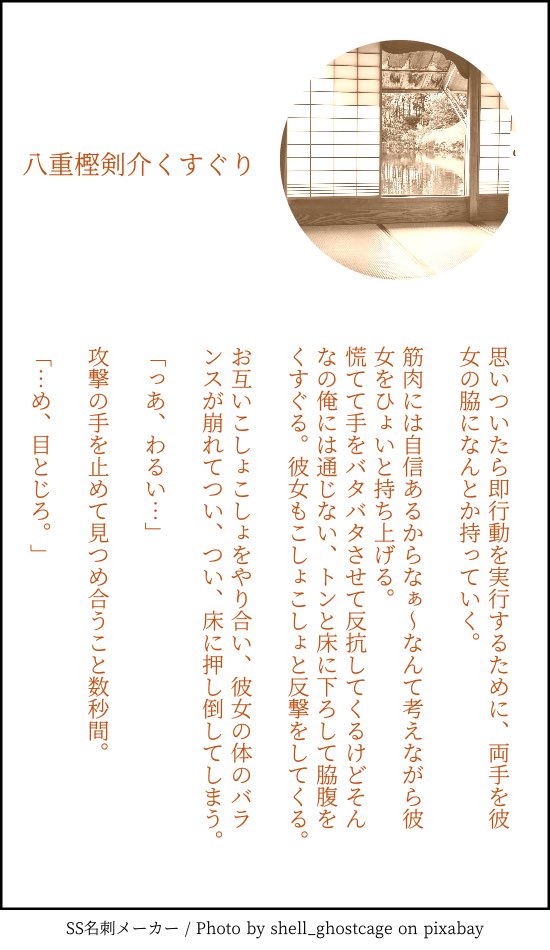 八重樫剣介くすぐり
思いついたら即行動を実行するために、両手を彼
女の脇になんとか持っていく。
筋肉には自信あるからなぁ～なんて考えながら彼
女をひょいと持ち上げる。
慌てて手をバタバタさせて反抗してくるけどそん
なの俺には通じない、トンと床に下ろして脇腹を
くすぐる。彼女もこしょこしょと反撃をしてくる。
お互いこしょこしょをやり合い、彼女の体のバラ
ンスが崩れてつい、つい、床に押し倒してしまう。
「っあ、わるい…」
攻撃の手を止めて見つめ合うこと数秒間。
「…め、目とじろ。」
SS名刺メーカー / Photo by shell_ghostcage on pixabay